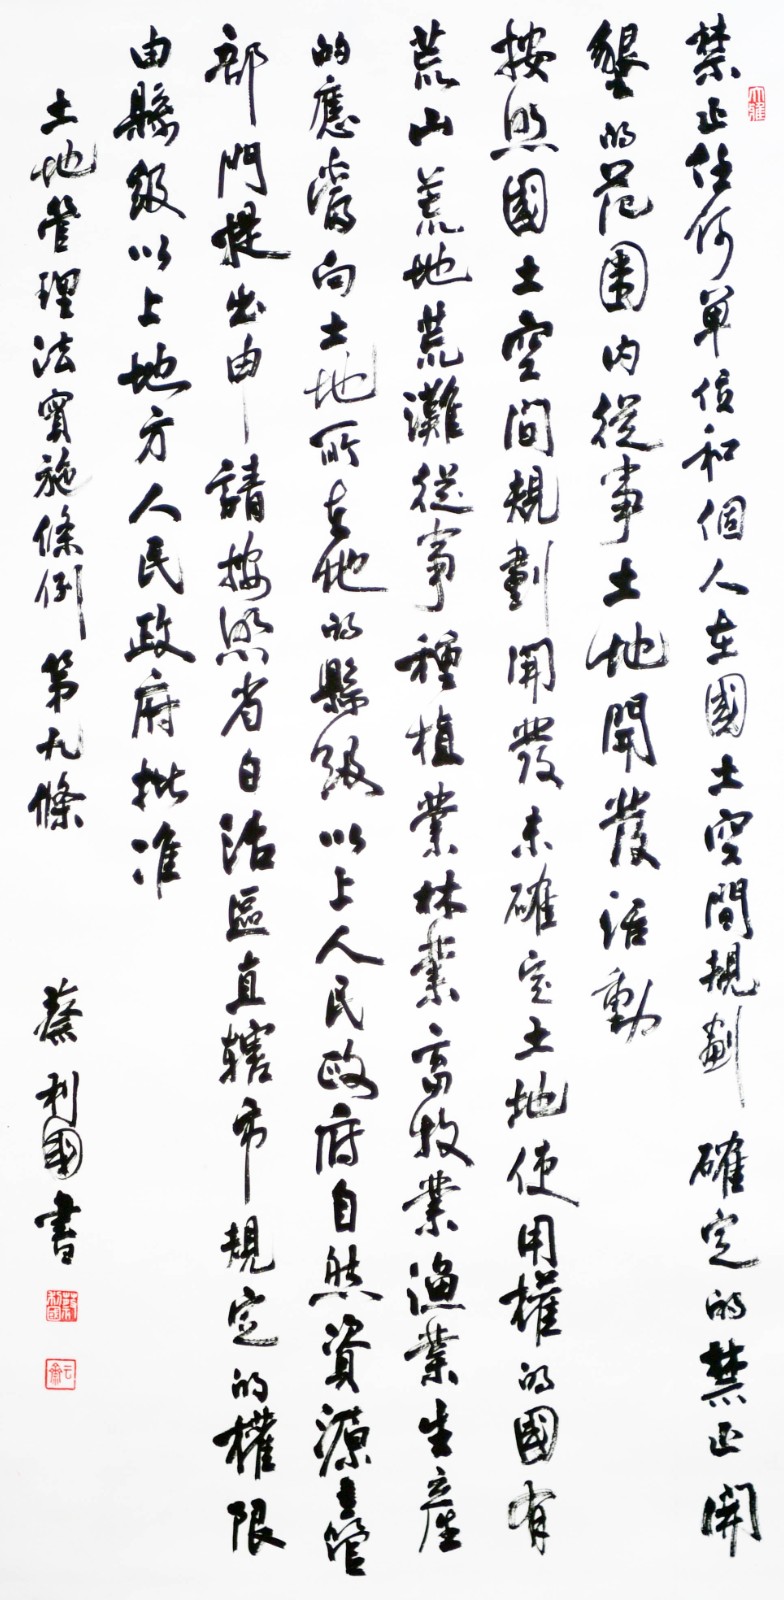 禁止任何單位和個人在國土空間規劃 確定的禁止開
墾的范圍内從事土地開發活動
按照國土空間規劃開發未確定土地使用權的國有
荒山荒地荒灘從事種植業林業畜牧業漁業生產
的應當向土地所在地的縣級以上人民政府自然資源主管
部門提出申請按照省自治區直轄市規定的權限
由縣級以上地方人民政府批准
土地管理法實施條例 第九條 蔡利國書